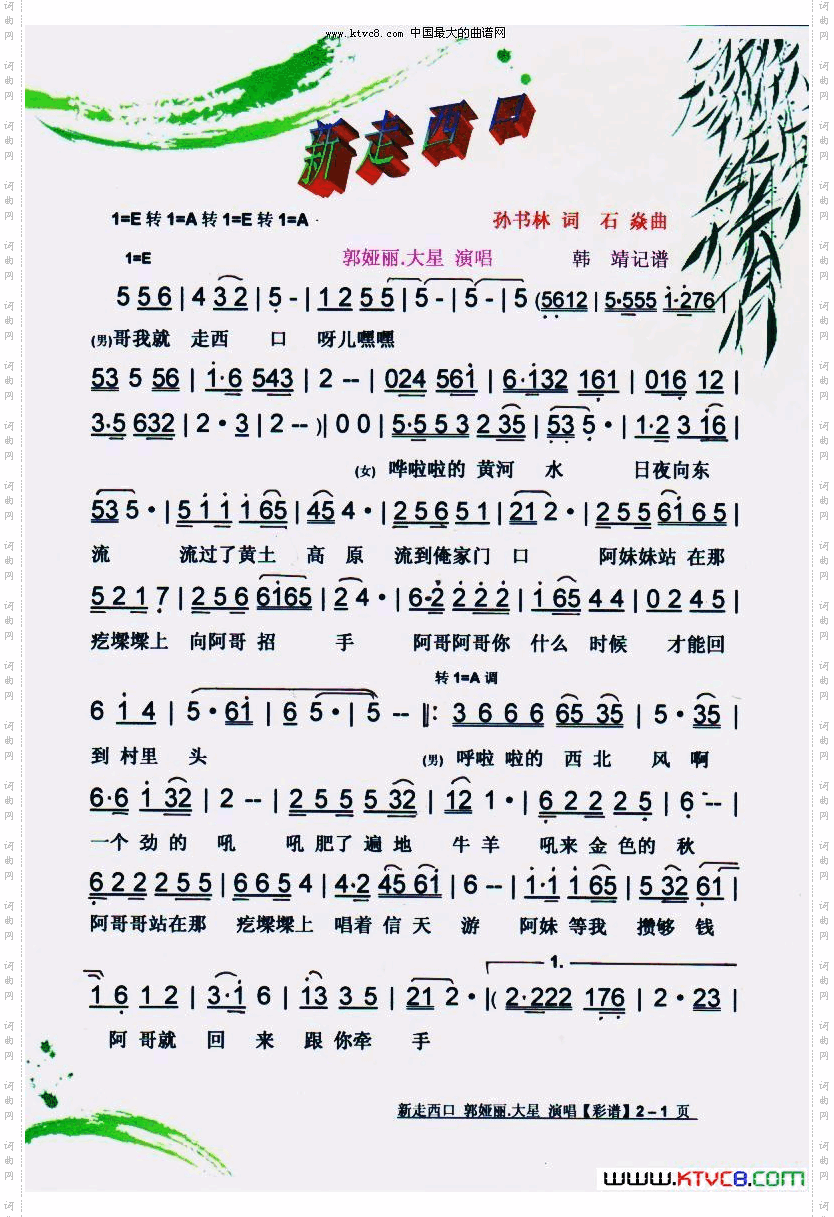 www.ktvc8.com 中国最大的曲谱网
新走西口
1=E 转 1=A 转 1=E 转 1=A
孙书林 词 石 焱曲
1=E
郭娅丽.大星 演唱
韩 靖记谱
5 5 6 | 4 3 2 | 5 - | 1 2 5 5 | 5 - | 5 - | 5 (5612 | 5·555 1·276 |
(男)哥我就 走西 口 呀儿嘿嘿
53 5 56 | 1·6 543 | 2 -- | 024 561 | 6·132 161 | 016 12 |
3·5 632 | 2 · 3 | 2 -- )| 0 0 | 5·5 5 3 2 35 | 53 5 · | 1·2 3 16 |
(女) 哗啦啦的 黄河 水 日夜向东
53 5 · | 5 1 1 1 65 | 45 4 · | 2 5 6 5 1 | 21 2 · | 2 5 5 61 6 5 |
流 流过了黄土 高 原 流到俺家门 口 阿妹妹站 在那
5 2 1 7 | 2 5 6 6165 | 2 4 · | 6·2 2 2 2 | 1 65 4 4 | 0 2 4 5 |
疙墚墚上 向阿哥 招 手 阿哥阿哥你 什么 时候 才能回
转 1=A 调
6 1 4 | 5 · 61 | 6 5 · | 5 -- ‖: 3 6 6 6 65 35 | 5 · 35 |
到 村里 头 (男) 呼啦 啦的 西 北 风 啊
6·6 1 32 | 2 -- | 2 5 5 5 32 | 12 1 · | 6 2 2 2 5 | 6 -- |
一个 劲 的 吼 吼 肥了 遍 地 牛 羊 吼来 金 色的 秋
6 2 2 2 5 5 | 6 6 5 4 | 4·2 45 61 | 6 -- | 1·1 1 65 | 5 32 61 |
阿哥哥站在那 疙墚墚上 唱着 信 天 游 阿妹 等我 攒够 钱
1.
1 6 1 2 | 3·1 6 | 13 3 5 | 21 2 · |( 2·222 176 | 2 · 23 |
阿 哥就 回 来 跟 你牵 手
新走西口 郭娅丽.大星 演唱【彩谱】2－1 页
www.KTVC8.com